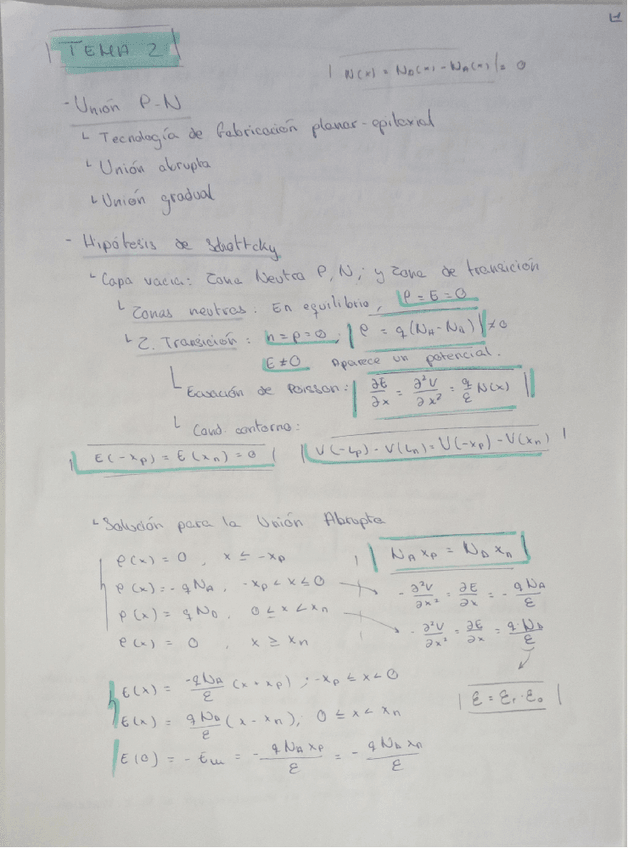 1
TEMA 2
N(x) = ND(x) - NA(x) = 0
- Unión P-N
↳ Tecnología de fabricación planar-epitaxial
↳ Unión abrupta
↳ Unión gradual
- Hipótesis de Schottcky
↳ Capa vacía: Zona Neutra P, N; y zona de transición
↳ Zonas neutras: En equilibrio, ρ = E = 0
↳ Z. Transición: n = p = 0; ρ = q(NA - NA) ≠ 0
E ≠ 0 Aparece un potencial.
↳ Ecuación de Poisson: ∂E/∂x = ∂²V/∂x² = q/ε N(x)
↳ Cond. contorno:
E(-xp) = E(xn) = 0 V(-Lp) - V(Ln) = V(-xp) - V(xn)
↳ Solución para la Unión Abrupta
ρ(x) = 0, x ≤ -xp NA xp = ND xn
ρ(x) = -qNA, -xp < x ≤ 0 → -∂²V/∂x² = ∂E/∂x = -qNA/ε
ρ(x) = qND, 0 ≤ x < xn → -∂²V/∂x² = ∂E/∂x = q·ND/ε
ρ(x) = 0, x ≥ xn
E(x) = -qNA/ε (x + xp), -xp ≤ x < 0 ε = εr · ε0
E(x) = qND/ε (x - xn), 0 ≤ x < xn
E(0) = -Em = -qNA xp/ε = -qND xn/ε